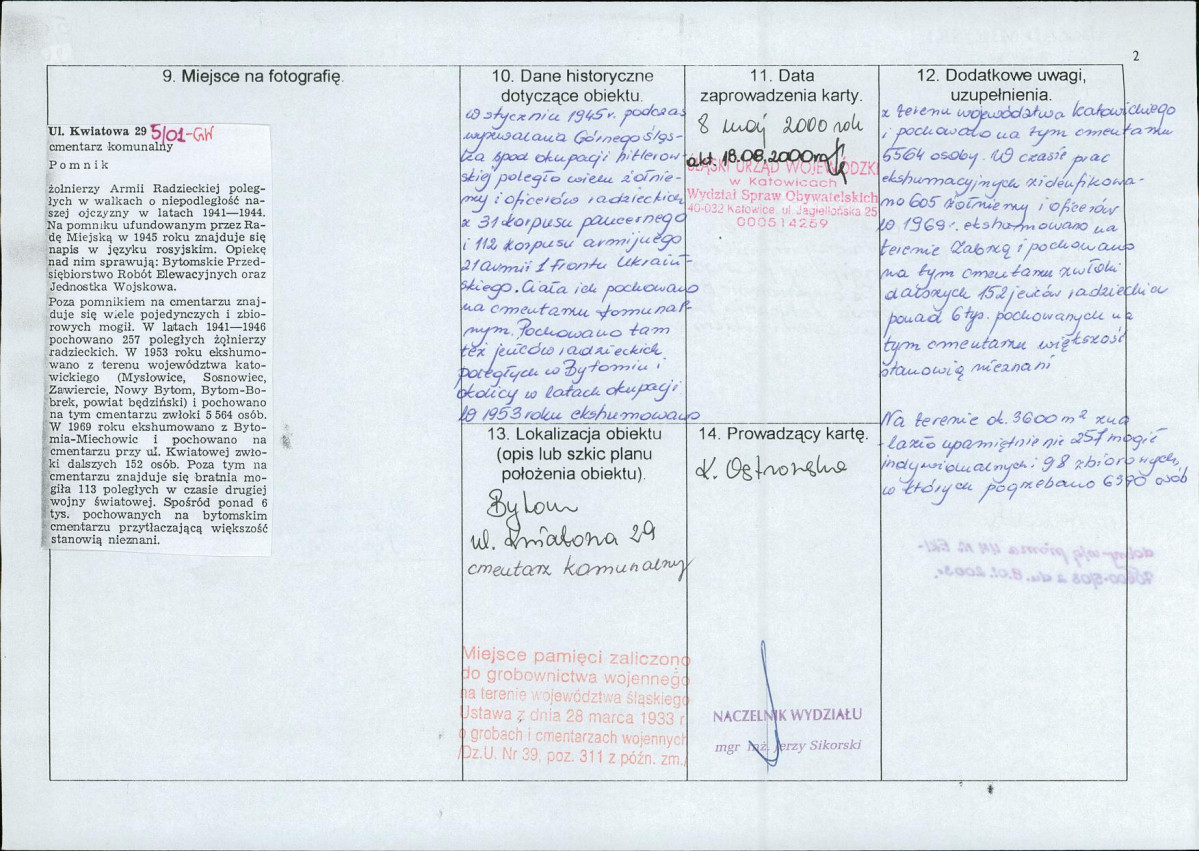 2
9. Miejsce na fotografię.
Ul. Kwiatowa 29 5/01-GW
cmentarz komunalny
Pomnik
żołnierzy Armii Radzieckiej poleg-
łych w walkach o niepodległość na-
szej ojczyzny w latach 1941—1944.
Na pomniku ufundowanym przez Ra-
dę Miejską w 1945 roku znajduje się
napis w języku rosyjskim. Opiekę
nad nim sprawują: Bytomskie Przed-
siębiorstwo Robót Elewacyjnych oraz
Jednostka Wojskowa.
Poza pomnikiem na cmentarzu znaj-
duje się wiele pojedynczych i zbio-
rowych mogił. W latach 1941—1946
pochowano 257 poległych żołnierzy
radzieckich. W 1953 roku ekshumo-
wano z terenu województwa kato-
wickiego (Mysłowice, Sosnowiec,
Zawiercie, Nowy Bytom, Bytom-Bo-
brek, powiat będziński) i pochowano
na tym cmentarzu zwłoki 5 564 osób.
W 1969 roku ekshumowano z Byto-
mia-Miechowic i pochowano na
cmentarzu przy ul. Kwiatowej zwło-
ki dalszych 152 osób. Poza tym na
cmentarzu znajduje się bratnia mo-
giła 113 poległych w czasie drugiej
wojny światowej. Spośród ponad 6
tys. pochowanych na bytomskim
cmentarzu przytłaczającą większość
stanowią nieznani.
10. Dane historyczne
dotyczące obiektu.
W styczniu 1945r. podczas
wyzwalania Górnego Śląs-
ka spod okupacji hitlerow-
skiej poległo wielu żołnie-
rzy i oficerów radzieckich
z 31 korpusu pancernego
i 112 korpusu armijnego
21 armii 1 frontu Ukraiń-
skiego. Ciała ich pochowano
na cmentarzu komunal-
nym. Pochowano tam
też jeńców radzieckich
poległych w Bytomiu i
okolicy w latach okupacji
W 1953 roku ekshumowano
11. Data
zaprowadzenia karty.
8 maj 2000 rok
akt. 18.08.2000r
ŚLĄSKI URZĄD WOJEWÓDZKI
w Katowicach
Wydział Spraw Obywatelskich
40-032 Katowice, ul. Jagiellońska 25
000514259
12. Dodatkowe uwagi,
uzupełnienia.
z terenu województwa katowickiego
i pochowano na tym cmentarzu
5564 osoby. W czasie prac
ekshumacyjnych zidenfikowa-
no 605 żołnierzy i oficerów
W 1969r. ekshumowano na
terenie i pochowano
na tym cmentarzu zwłoki
dalszych 152 jeńców radzieckich
ponad 6 tys. pochowanych na
tym cmentarzu większość
stanowią nieznani
Na terenie ok. 3600 m² zna
-lazło upamiętnienie 257 mogił
indywidualnych i 98 zbiorowych,
w których pogrzebano 6390 osób
13. Lokalizacja obiektu
(opis lub szkic planu
położenia obiektu).
Bytom
ul. Kwiatowa 29
cmentarz komunalny
Miejsce pamięci zaliczono
do grobownictwa wojennego
na terenie województwa śląskiego
Ustawa z dnia 28 marca 1933 r.
o grobach i cmentarzach wojennych
/Dz.U. Nr 39, poz. 311 z późn. zm./
14. Prowadzący kartę.
K. Ostrowska
NACZELNIK WYDZIAŁU
mgr inż. Jerzy Sikorski